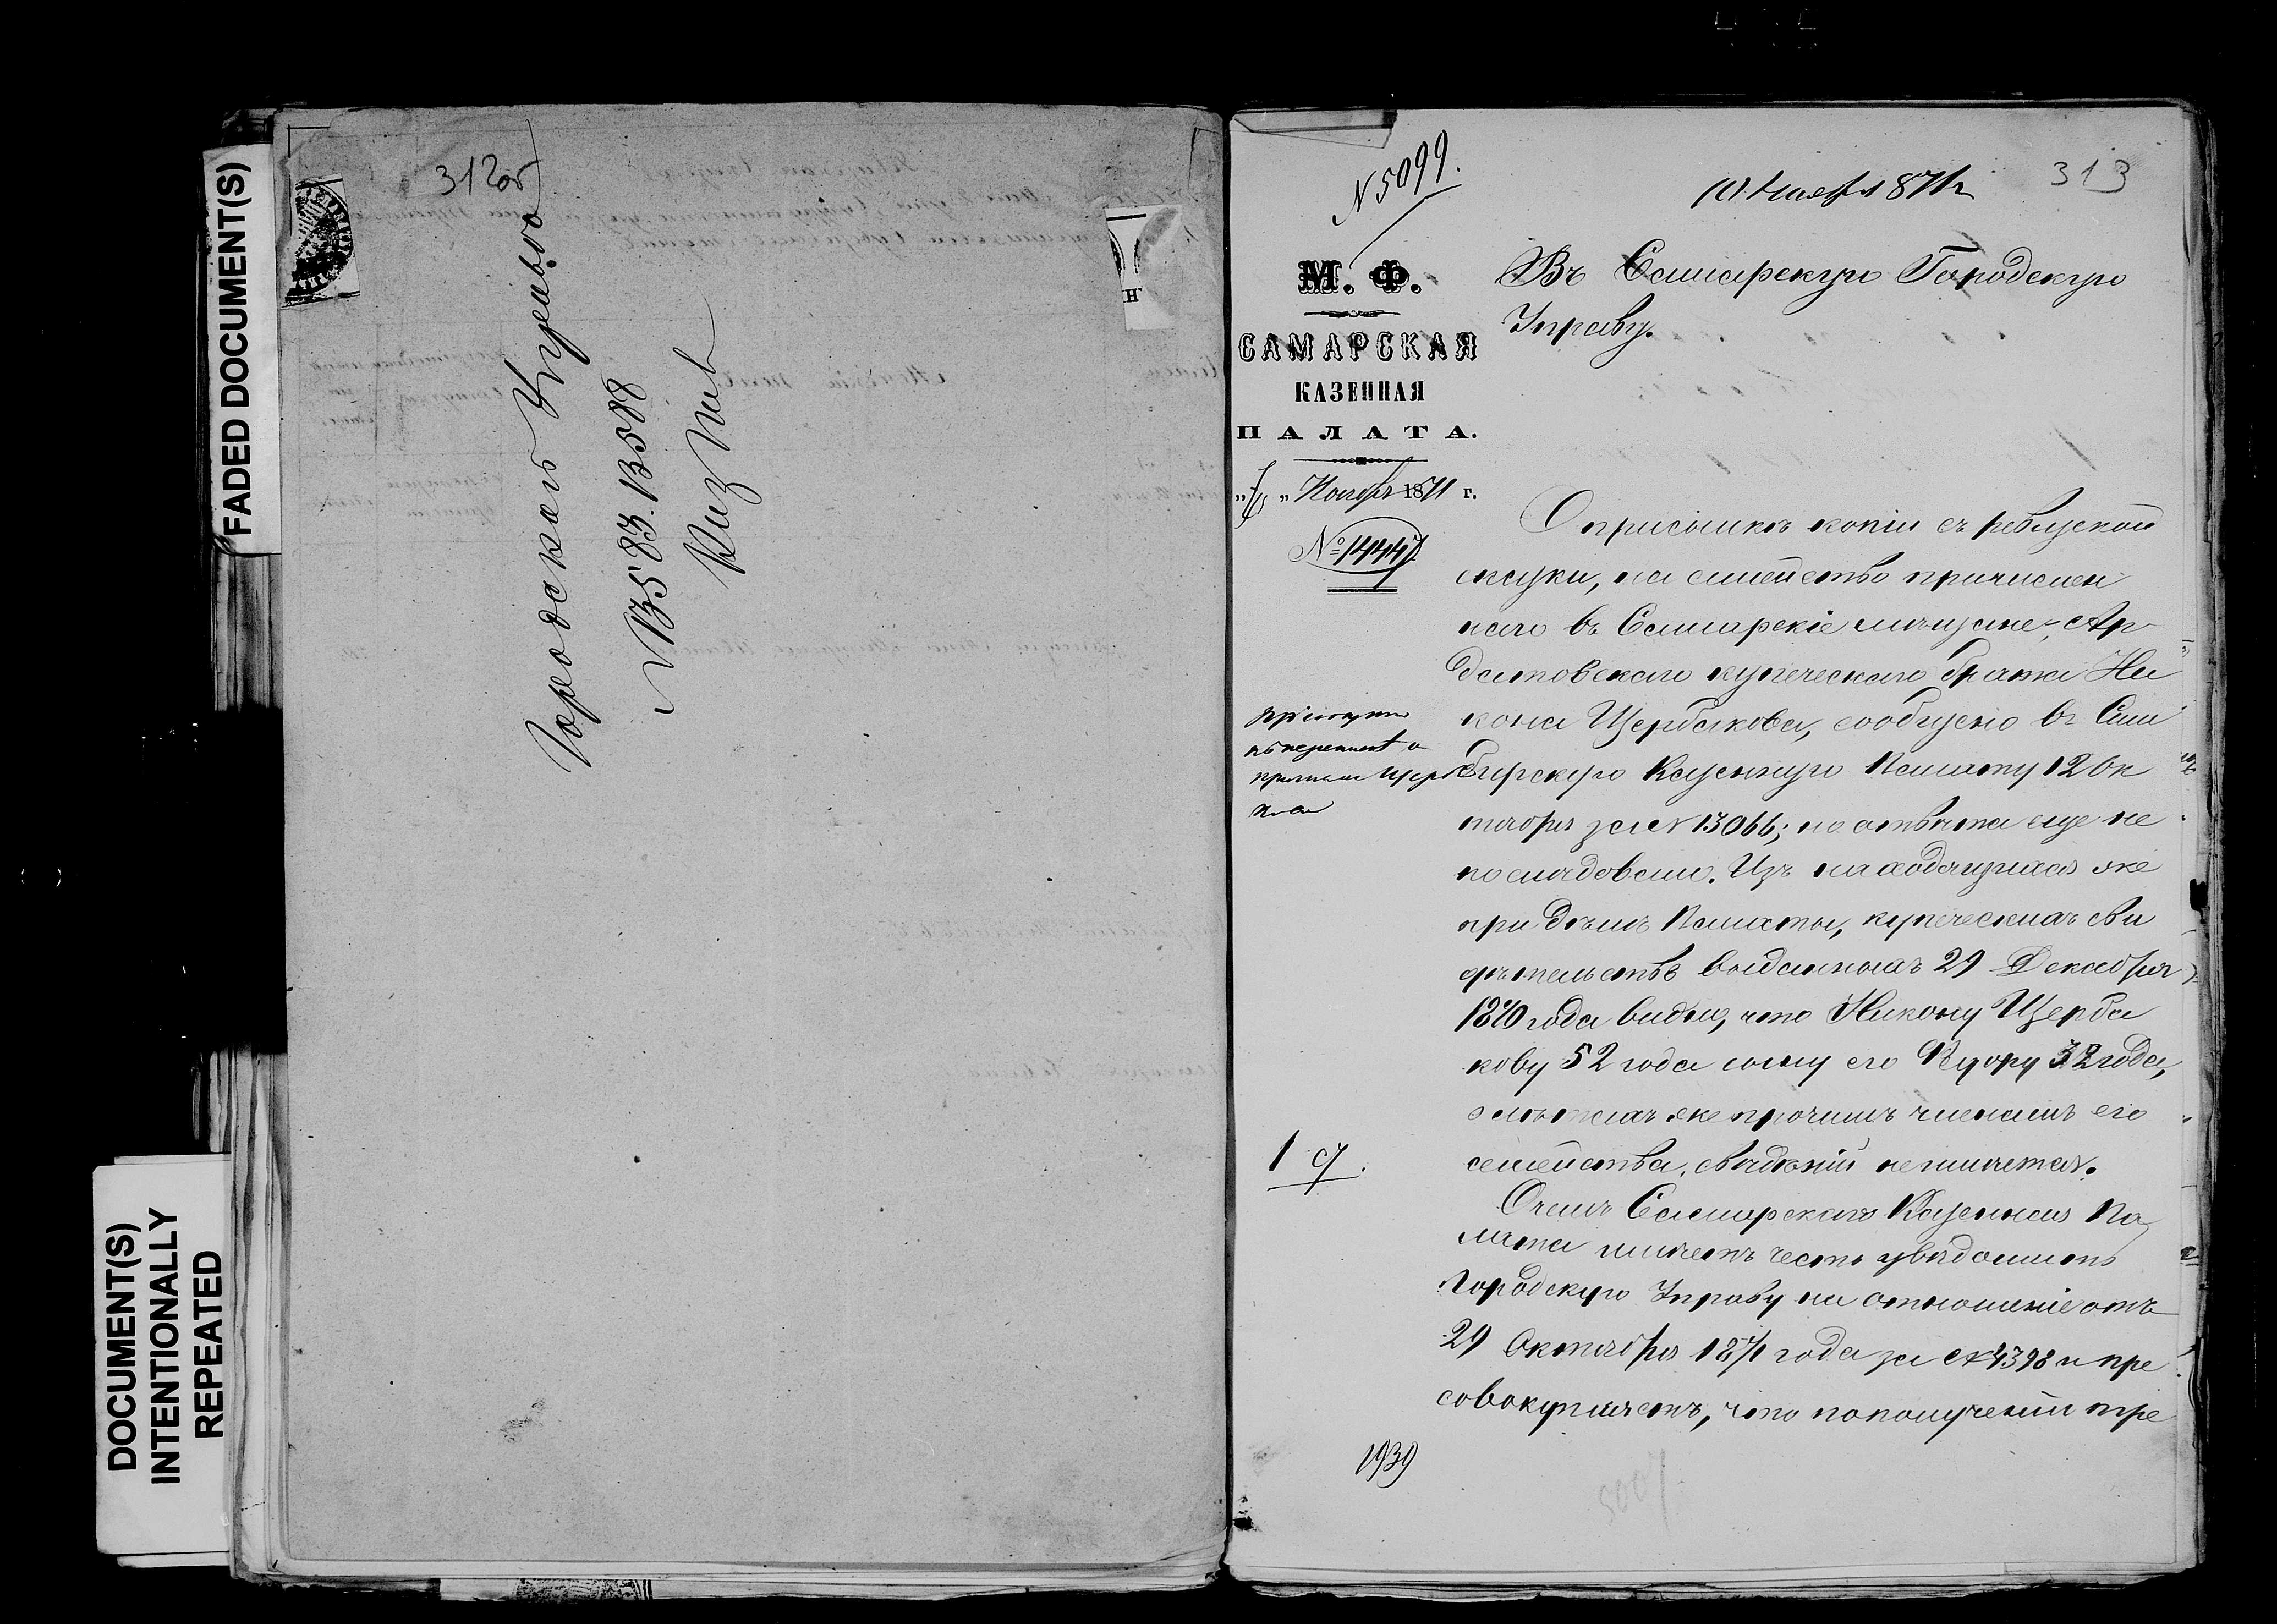 FADED DOCUMENT(S)
DOCUMENT(S)
INTENTIONALLY
REPEATED
312об
Городскаго
№ 13583. 13588
313
N 5099.
10 Ноября 1871 г
М. Ф.
САМАРСКАЯ
КАЗЕННАЯ
ПАЛАТА.
Ноября 1871 г.
№ 14447
Въ Самарскую Городскую
Управу.
О присылкѣ копіи съ ревизской
сказки, на семейство причислен
наго въ Самарскіе мѣщане, Ар
датовскаго купеческаго брата Ни
кона Щербакова, сообщено въ Сим
бирскую Казенную Палату 12 Ок
тября за № 13066; но отвѣта еще не
послѣдовало. Изъ находящихся же
при дѣлѣ Палаты, купеческихъ сви
дѣтельствъ выданныхъ 29 Декабря
1870 года видно, что Никону Щерба
кову 52 года сыну его 32 года,
о лѣтахъ же прочимъ членамъ его
семейства, свѣдѣній не имѣется.
О чемъ Самарская Казенная Па
лата имѣетъ честь увѣдомить
Городскую Управу на отношеніе отъ
29 Октября 1871 года за № 4398 и при
совокупляетъ, что по полученіи тре
1939